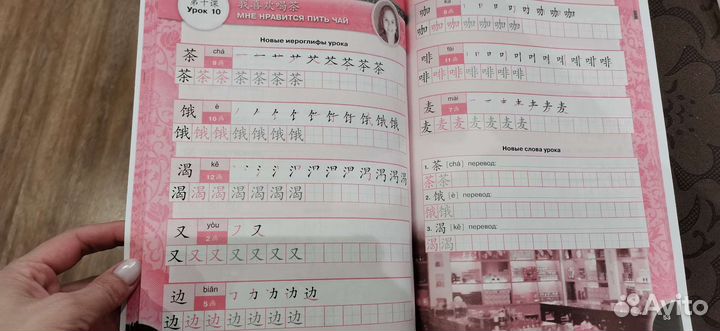 第十课
Урок 10
我喜欢喝茶
МНЕ НРАВИТСЯ ПИТЬ ЧАЙ
Новые иероглифы урока
茶
chá
9画
茶茶茶茶茶茶茶
饿
è
10画
饿饿饿饿饿饿饿
渴
kě
12画
渴渴渴渴渴渴渴
又
yòu
2画
又又又又又又又
边
biān
5画
边边边边边边边
咖
8画
咖咖咖咖咖咖咖
啡
fēi
11画
啡啡啡啡啡啡啡
麦
mài
7画
麦麦麦麦麦麦麦
Новые слова урока
1. 茶 [chá] перевод:
茶茶
2. 饿 [è] перевод:
饿饿
3. 渴 [kě] перевод:
渴渴
Avito